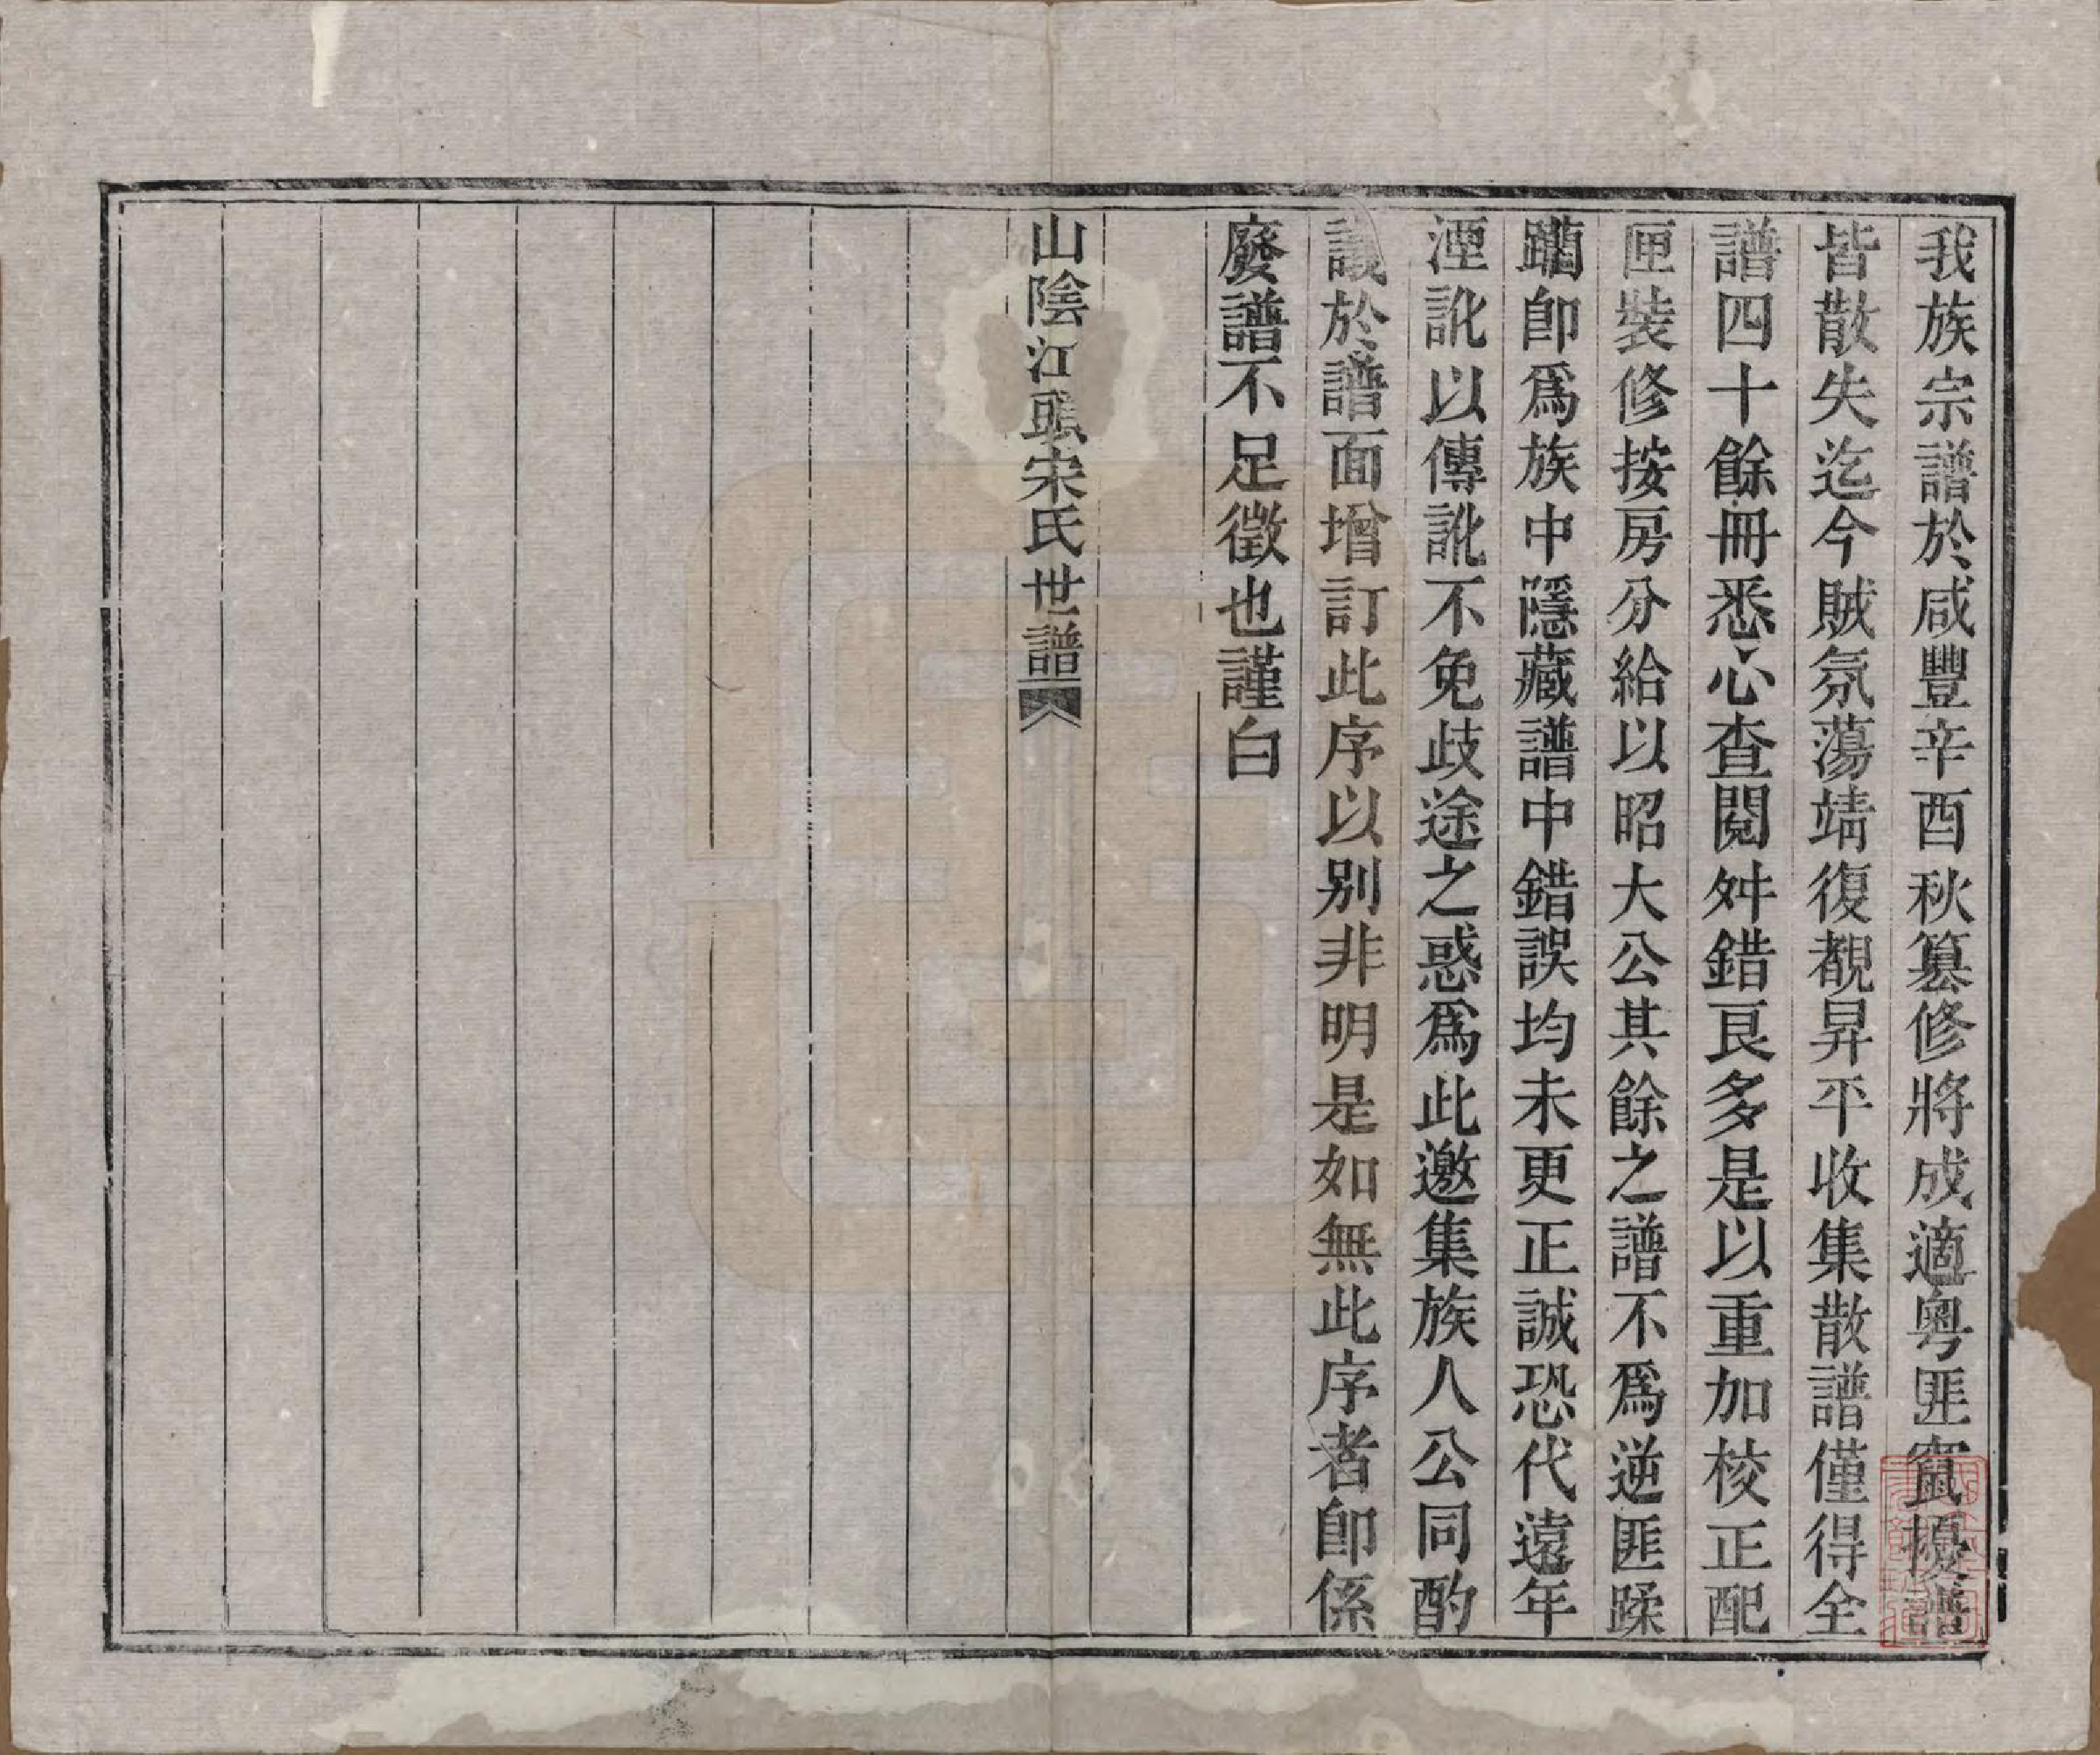 我族宗譜於咸豐辛酉秋纂修將成適粵匪竄擾譜
皆散失迄今賊氛蕩靖復覩昇平收集散譜僅得全
譜四十餘冊悉心查閱舛錯良多是以重加校正配
匣裝修按房分給以昭大公其餘之譜不爲逆匪蹂
躪卽爲族中隱藏譜中錯誤均未更正誠恐代遠年
湮訛以傳訛不免歧途之惑爲此邀集族人公同酌
議於譜面增訂此序以别非明是如無此序者卽係
廢譜不足徵也謹白
山陰江頭宋氏世譜